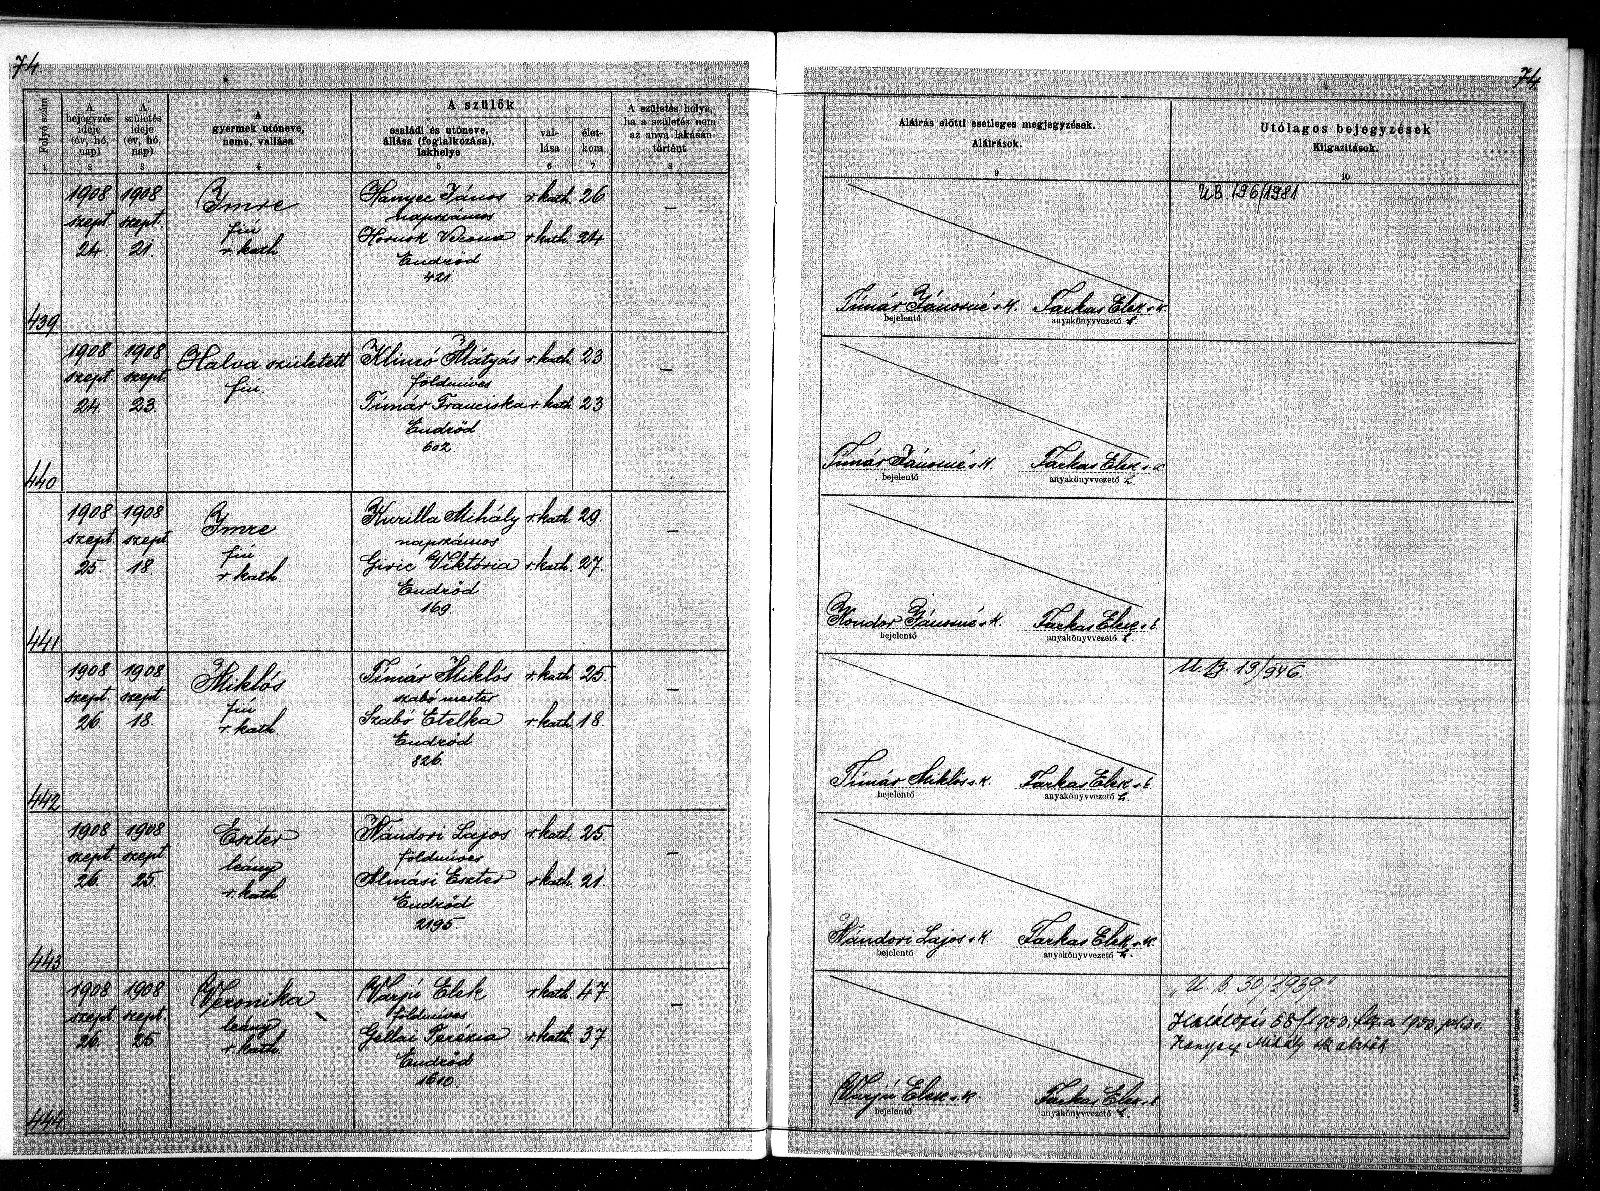 74
Folyó szám
1
A bejegyzés ideje (év, hó, nap)
2
A születés ideje (év, hó, nap)
3
A gyermek utóneve, neme, vallása
4
A szülők
családi és utóneve, állása (foglalkozása), lakhelye
5
vallása
6
életkora
7
A születés helye, ha a születés nem az anya lakásán történt
8
439
1908 szept. 24.
1908 szept. 21.
Imre
fiú
r. kath
Hanyec János r. kath. 26
napszámos
Hornok Verona r. kath. 24
Endrőd
421
—
440
1908 szept. 24.
1908 szept. 23.
Halva született
fiu.
Klimó Mátyás r. kath. 23
földmíves
Tímár Franciska r. kath. 23
Endrőd
602
—
441
1908 szept. 25.
1908 szept. 18.
Imre
fiú
r. kath
Kurilla Mihály r. kath. 29.
napszámos
Giric Viktória r. kath. 27.
Endrőd
169.
—
442
1908 szept. 26.
1908 szept. 18.
Miklós
fiú
r. kath
Tímár Miklós r. kath. 25.
szabó mester
Szabó Etelka r. kath. 18.
Endrőd
826.
—
443
1908 szept. 26.
1908 szept. 25.
Eszter
leány
r. kath
Nándori Lajos r. kath. 25.
földmíves
Almási Eszter r. kath. 21.
Endrőd
2195
—
444
1908 szept. 26.
1908 szept. 25
Veronika
leány
r. kath.
Varjú Elek r. kath. 47
földmíves
Gellai Terézia r. kath. 37
Endrőd
1610.
—
74
Aláírás előtti esetleges megjegyzések.
Aláírások.
9
Utólagos bejegyzések
Kiigazítások.
10
UB 196/1981
Tímár Jánosné s. k. Farkas Elek s. k.
bejelentő anyakönyvvezető
Tímár Jánosné s. k. Farkas Elek s. k.
bejelentő anyakönyvvezető
Kondor Jánosné s. k. Farkas Elek s. k.
bejelentő anyakönyvvezető
U. B. 19/946.
Tímár Miklós s. k. Farkas Elek s. k.
bejelentő anyakönyvvezető
Nándori Lajos s. k. Farkas Elek s. k.
bejelentő anyakönyvvezető
U. B 30/1939
Varjú Elek s. k. Farkas Elek s. k.
bejelentő anyakönyvvezető